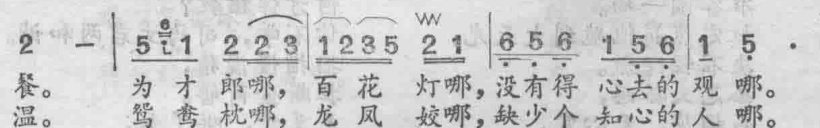 2 — | 5 6 i 1 2 2 3 | 1 2 3 5 2 1 | 6 5 6 1 5 6 | 1 5 .
餐。 为 才 郎哪， 百 花 灯哪，没有得 心去的 观 哪。
温。 鸳 鸯 枕哪， 龙 凤 姣哪，缺少个 知心的 人 哪。